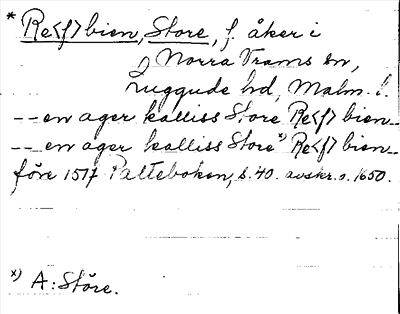 * Re<f>bien, Store, f. åker i
Norra Vrams sn,
Luggude hd, Malm. l.
-- en ager kalliss Store Re<f>bien --
-- en ager kalliss Store *) Re<f>bien --
före 1517 Palteboken, s. 40. avskr. o. 1650.
*) A: Störe.